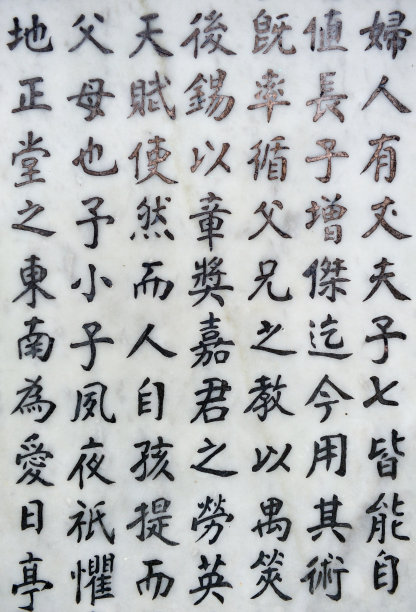 婦人有丈夫子七皆能自
値長子增傑迄今用其術
既率循父兄之教以禺筴
後錫以章獎嘉君之勞英
天賦使然而人自孩提而
父母也予小子夙夜祇懼
地正堂之東南為愛日亭